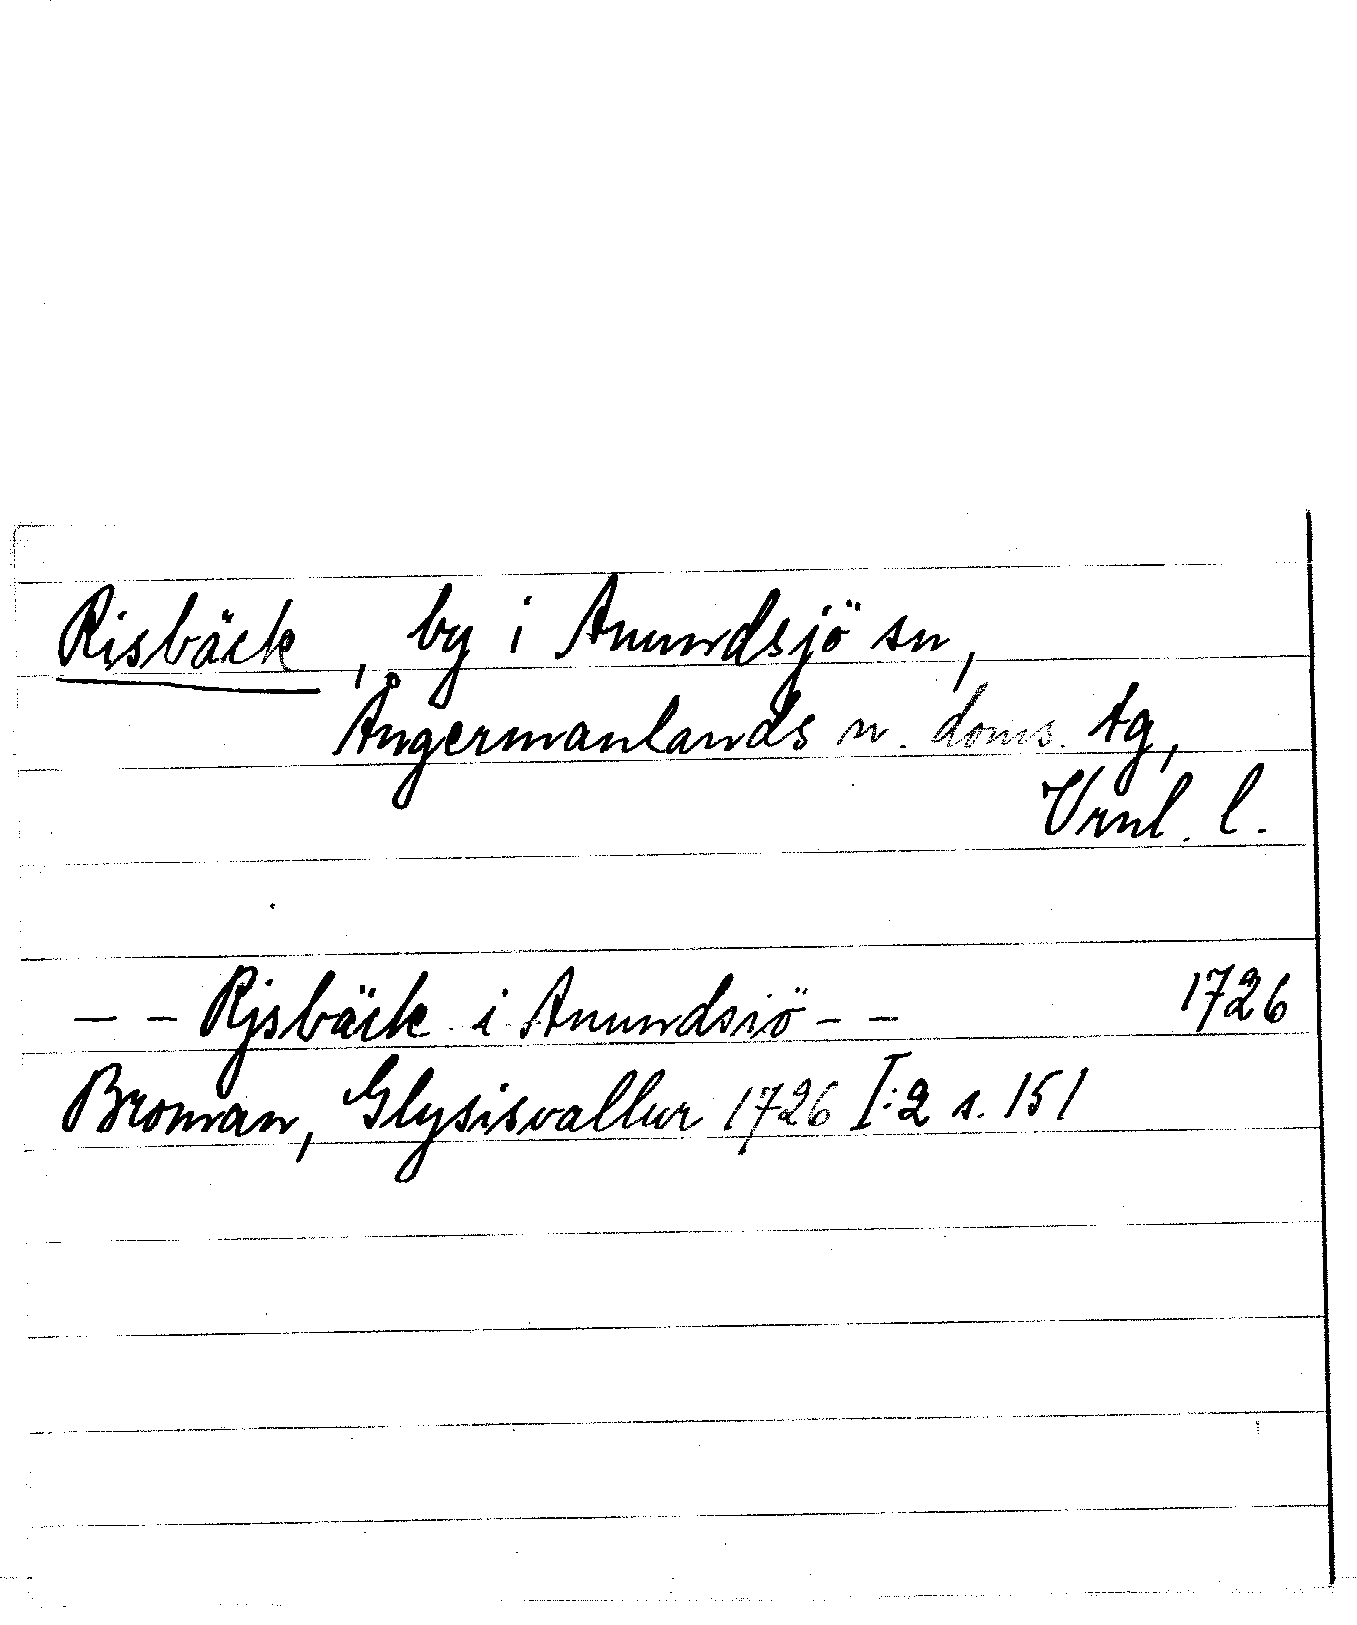 Risbäck, by i Anundsjö sn,
Ångermanlands n. doms. tg,
Vrnl. l.
– – Rjsbäck i Anundsiö – – 1726
Broman, Glysisvallur 1726 I:2 s. 151